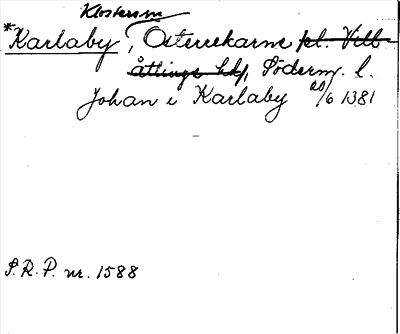 Klosterm
*Karlaby, Österrekarne pl. Vill-
åttinge hd, Söderm. l.
Johan i Karlaby 20/6 1381
S.R.P. nr. 1588